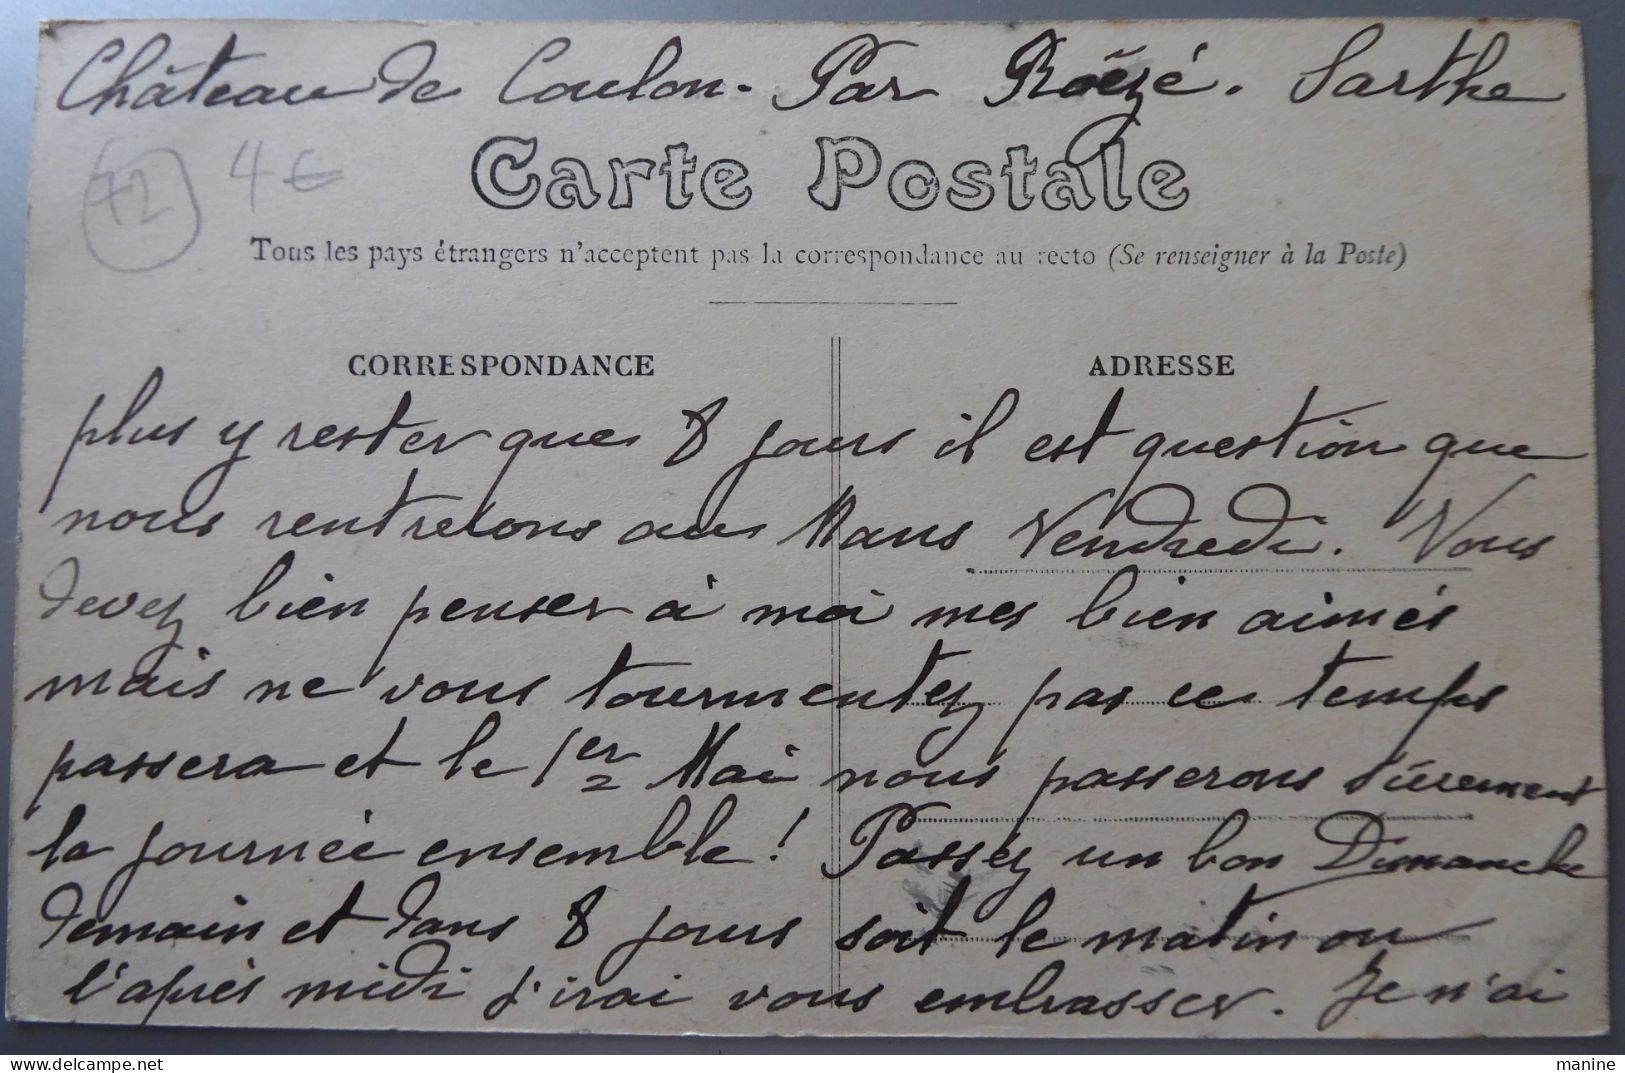 Château de Coulon. Par Roëzé. Sarthe
72 4€
Carte Postale
Tous les pays étrangers n'acceptent pas la correspondance au recto (Se renseigner à la Poste)
CORRESPONDANCE
ADRESSE
plus y rester que 8 jours il est question que
nous rentrerons au Mans Vendredi. Vous
devez bien penser à moi mes bien aimés
mais ne vous tourmentez pas ce temps
passera et le 1er Mai nous passerons sûrement
la journée ensemble! Passez un bon Dimanche
demain et dans 8 jours soit le matin ou
l'après midi j'irai vous embrasser. Je n'ai
manine